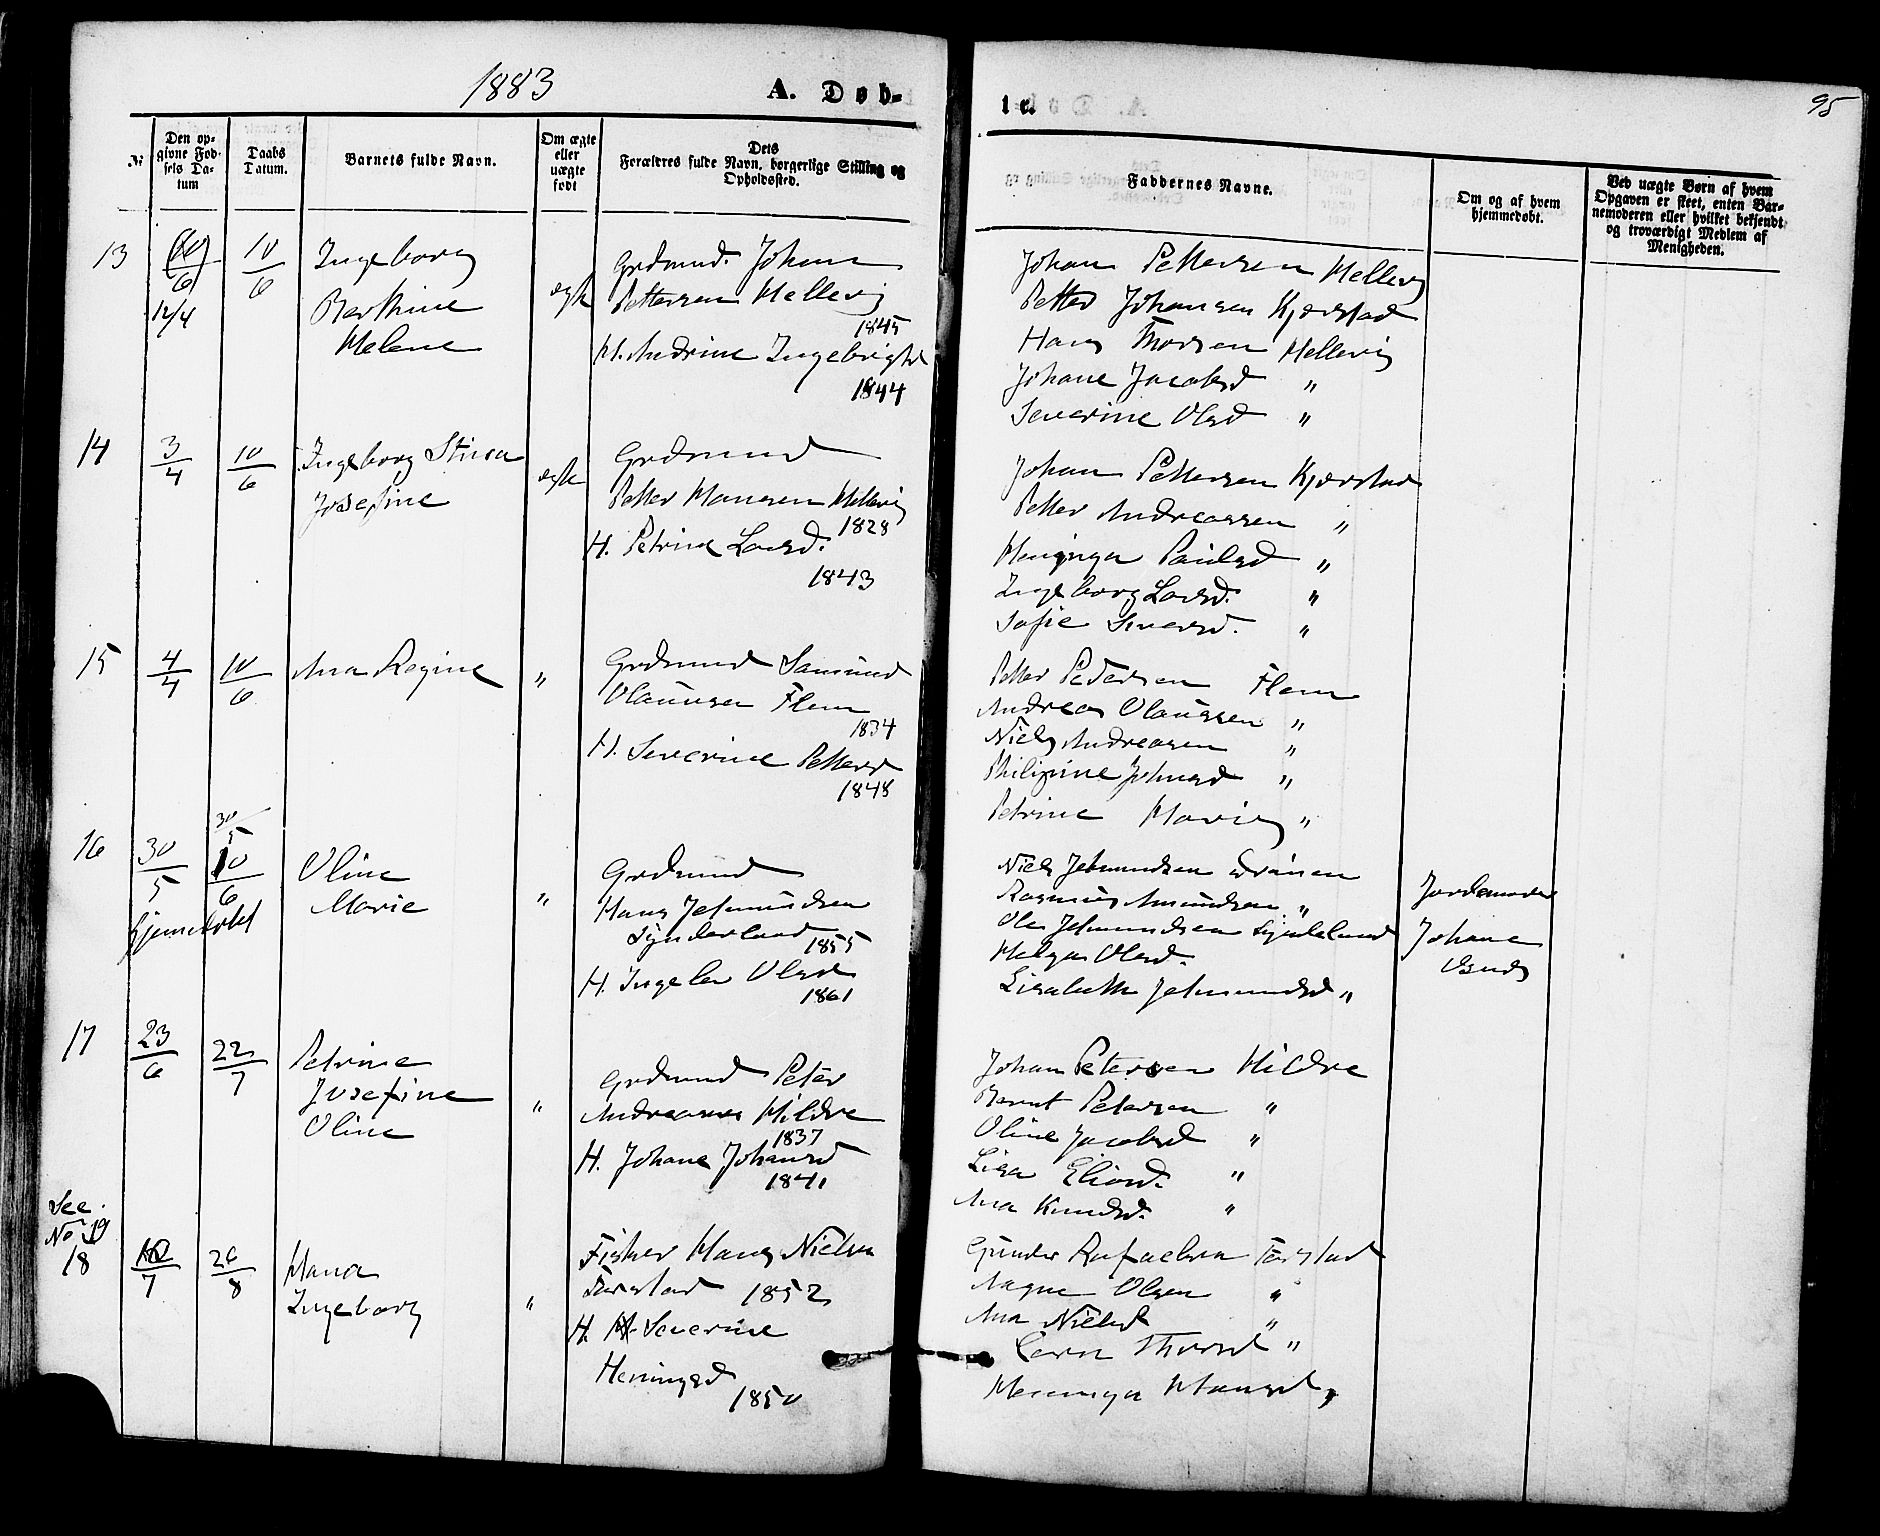 1883 A. Døb-
te. 95
№
Den op-
givne Fød-
sels Da-
tum
Daabs
Datum.
Barnets fulde Navn.
Om ægte
eller
uægte
født
Dets
Forældres fulde Navn, borgerlige Stilling og
Opholdssted.
Faddernes Navne.
Om og af hvem
hjemmedøbt.
Ved uægte Børn af hvem
Opgaven er skeet, enten Bar-
nemoderen eller hvilket bekjendt
og troværdigt Medlem af
Menigheden.
13
10/6
12/4
10/6
Ingeborg
Berthine
Helene
egte
Grdmnd. Johan
Pettersen Hellevig
1845
H. Andrine Ingebrigtsd
1844
Johan Pettersen Hellevig
Petter Johansen Kjerstad
Hans Thorsen Hellevig
Johane Jacobsd "
Severine Olsd "
14
3/4
10/6
Ingeborg Stina
Josefine
egte
Grdmnd
Petter Hansen Hellevig
1828
H. Petrine Larsd.
1843
Johan Pettersen Kjerstad
Petter Andreassen "
Henginga Paulsd "
Ingeborg Larsd. "
Sofie Iversd. "
15
4/4
10/6
Ana Regine
"
Grdmnd Samund
Olaussen Flem
1834
H. Severine Pettersd
1848
Petter Pedersen Flem
Andreas Olaussen "
Niels Andreasen "
Philipine Johnsd "
Petrine Marie "
16
30/5
30/5
10/6
hjemmedøbt
Oline
Marie
"
Grdmnd
Hans Jetmundsen
Synderland
1855
H. Ingeleu Olsd
1861
Niels Jetmundsen
Rasmus Amundsen "
Ole Jetmundsen Synderland
Helga Olsd.
Lisabeth Jetmundsd "
Jordemoder
Johane
17
23/6
22/7
Petrine
Josefine
Oline
"
Grdmnd Peter
Andreasen Hildre
1837
H. Johane Johansd
1841
Johan Petersen Hildre
Bernt Petersen "
Oline Jacobsd "
Lisa Eliasd. "
Ana Knudsd. "
See
No 19
18
10/7
26/8
Hana
Ingeborg
"
Fisker Hans Nielsen
Farstad 1852
H. Severine
Heningsd
1850
Gunder Rafaelsen Farstad
Magne Olsen "
Ana Nielsd "
Caren Thorsd "
Heninga Hansd "